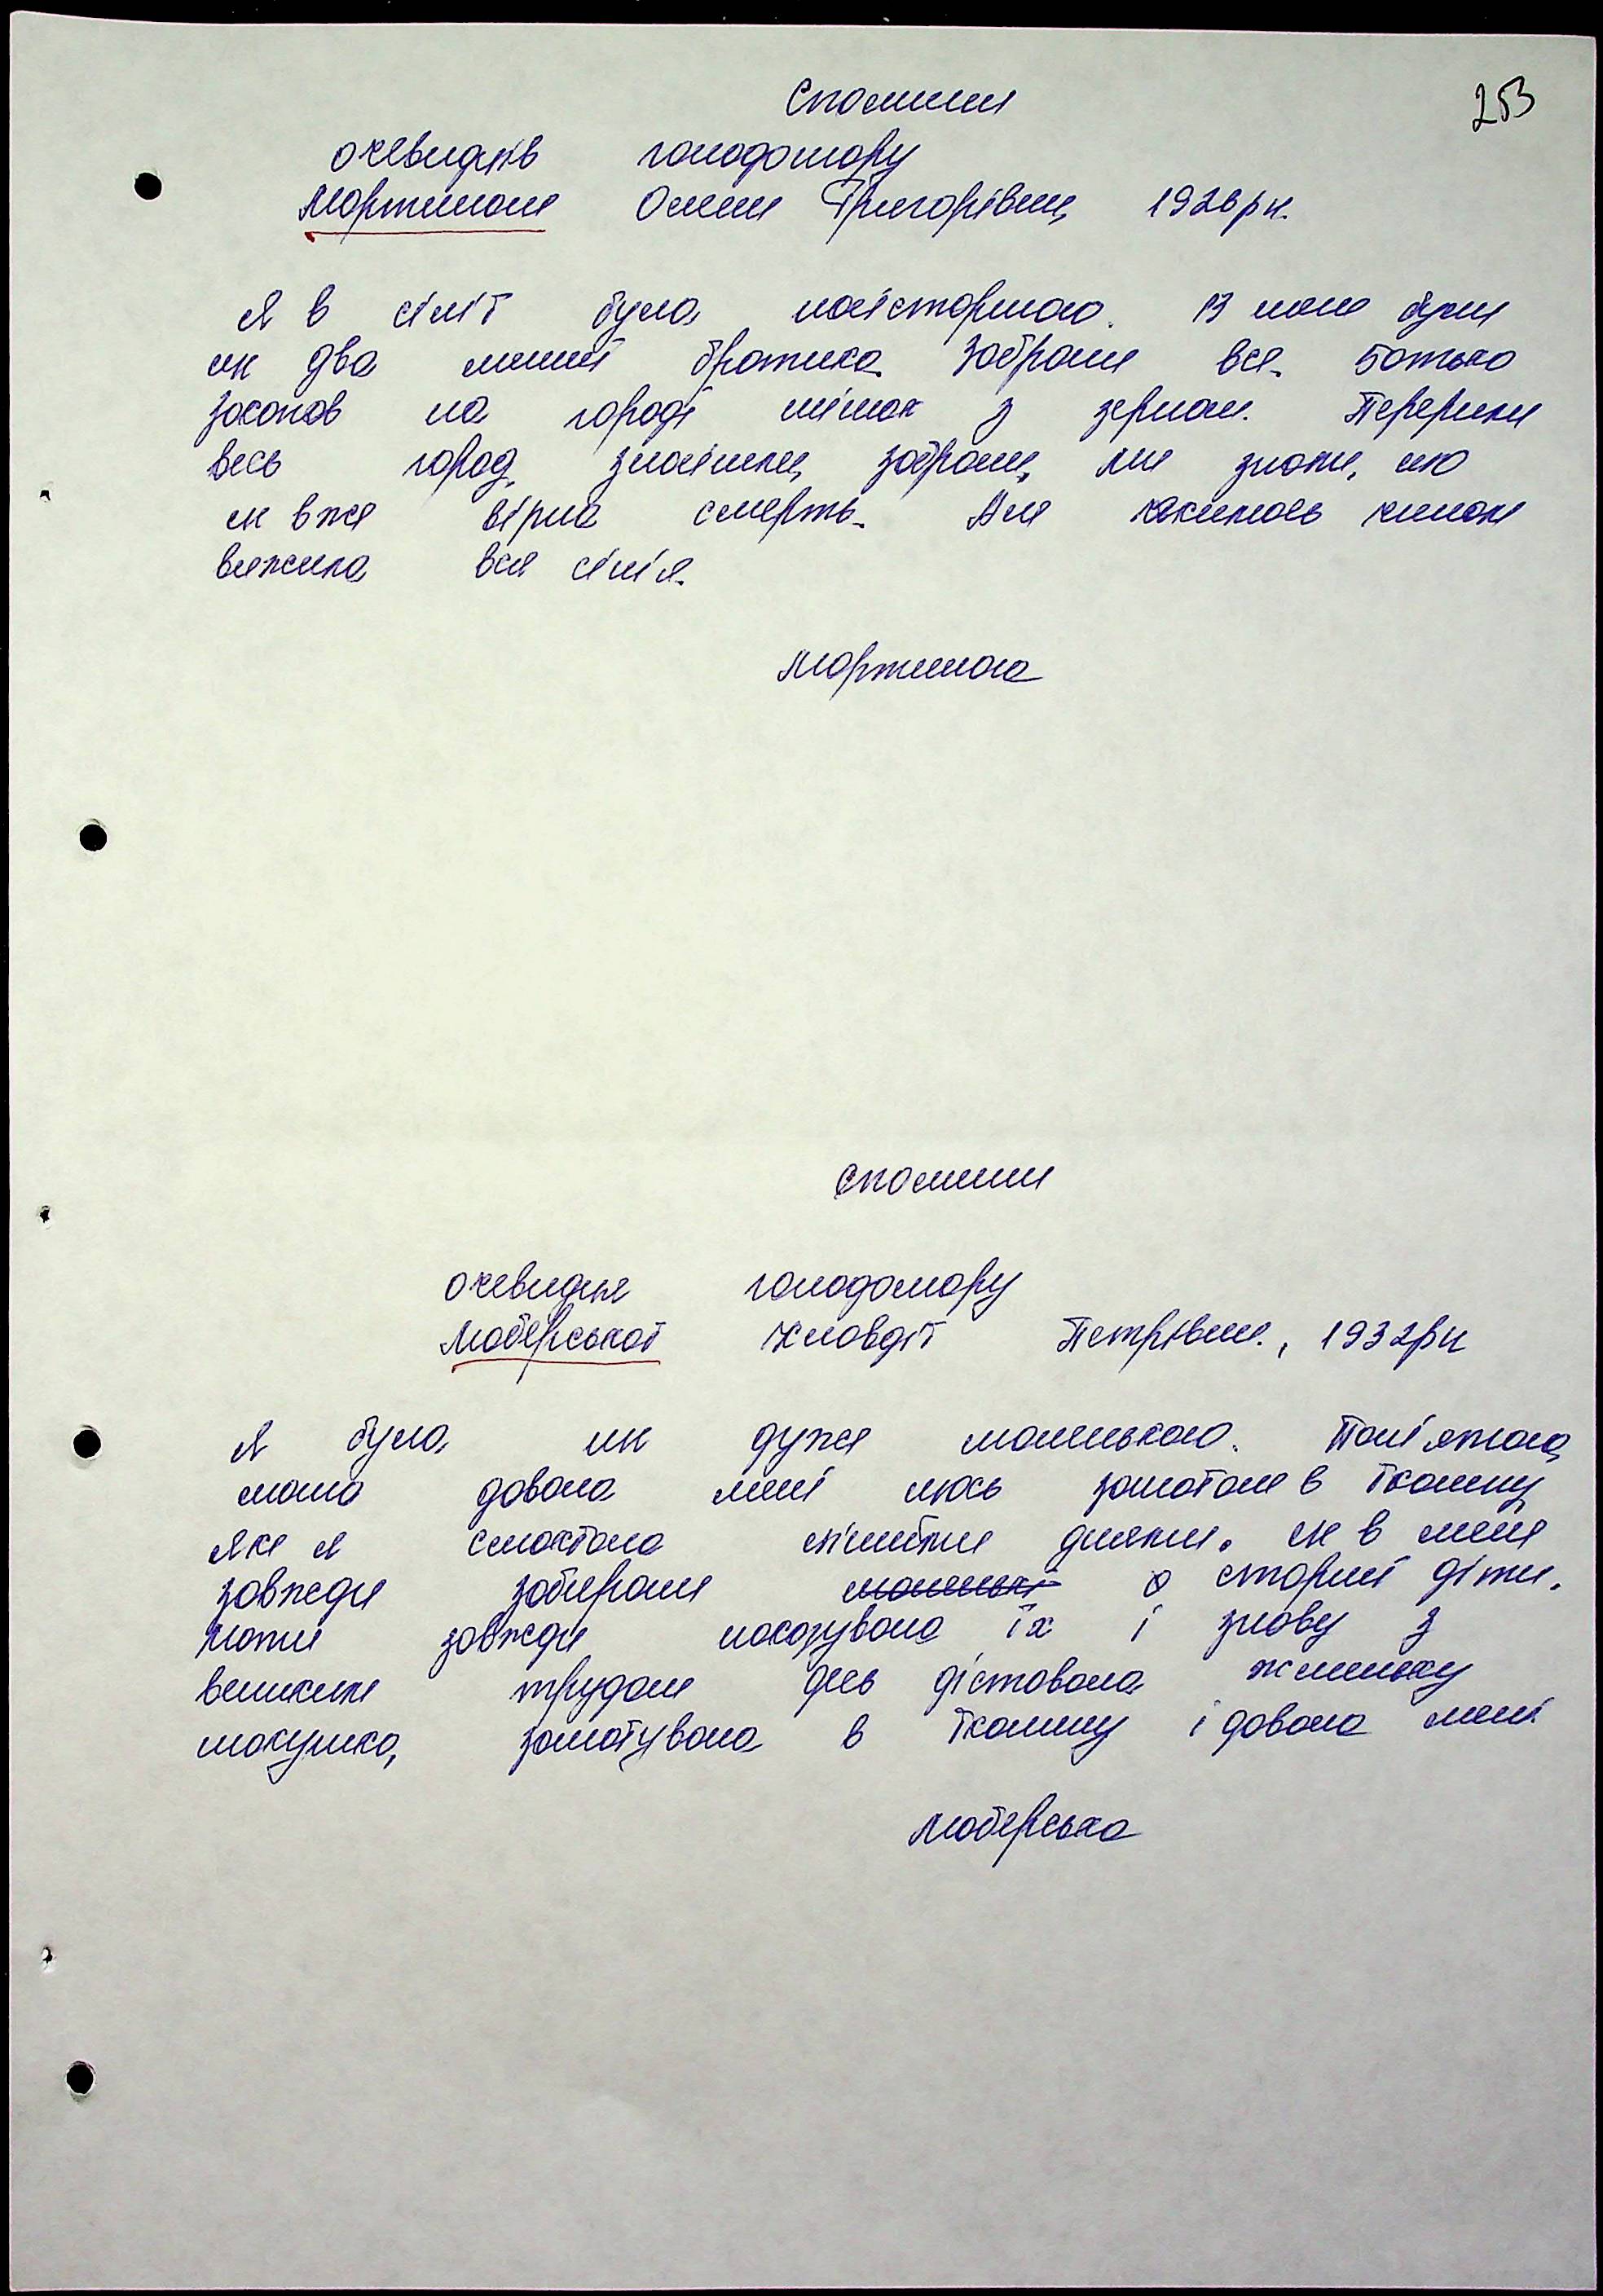 253
Спомини
очевидців голодомору
Мартинюк Олени Григорівни, 1926 р.н.
Я в сім'ї була найстаршою. В мене були
ще два менші братика. Забрали все. Батько
закопав на городі мішок з зерном. Перерили
весь город, знайшли, забрали, ми знали, що
це вже вірна смерть. Але якимось чином
вижила вся сім'я.
Спомини
очевидця голодомору
Клавдії Петрівни., 1932 рн
Я була ще дуже маленькою. Пам'ятаю,
мама давала мені щось замотане в тканину
яке я смоктала цілими днями. Це в мене
завжди забирали а старші діти.
Мати завжди наказувала їх і знову з
великим трудом десь діставала жменьку
макушка, замотувала в тканину і давала мені